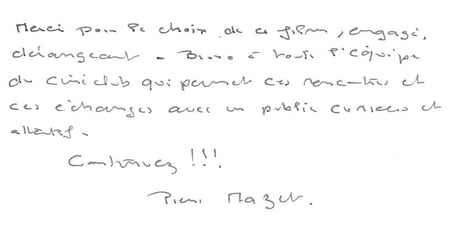 Merci pour le choix de ce film, engagé,
dérangeant. Bravo à toute l'équipe
du cinéclub qui permet ces rencontres et
ces échanges avec un public curieux et
attentif.
Continuez !!!
Pierre Mazet.